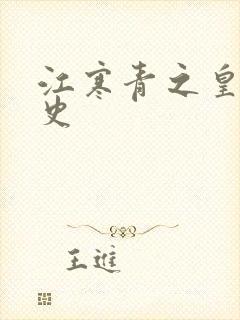 江寒青之皇
史
王進